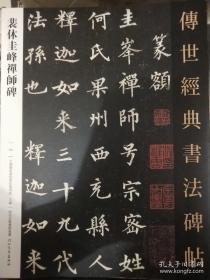 傳世經典書法碑帖
篆額
圭峯禪師號宗密姓
何氏果州西充縣人
釋迦如來三十九代
法孫也 釋迦如來
裴休圭峰禪師碑